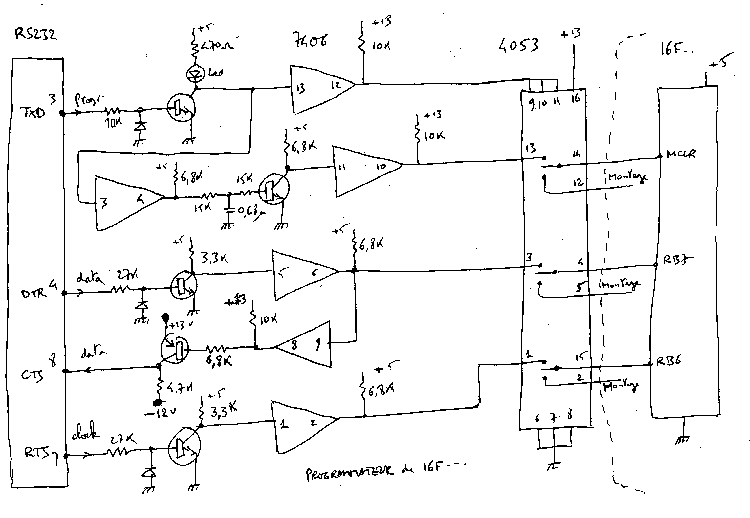 RS232
+5
470Ω
Led
7406
+13
10K
4053
+13
16F...
+5
TXD
3
Progr
10K
13
12
9
10
11
16
+13
10K
+5
6,8K
+5
6,8K
15K
15K
0,68µ
3
4
11
10
13
14
12
MCLR
Montage
+5
3,3K
+5
6,8K
DTR
4
data
27K
5
6
3
4
5
RB7
Montage
+13v
+13
10K
6,8K
8
9
CTS
8
data
4,7K
-12v
+5
3,3K
+5
6,8K
1
15
2
RB6
Montage
RTS
7
clock
27K
1
2
6
7
8
PROGRAMMATEUR de 16F---